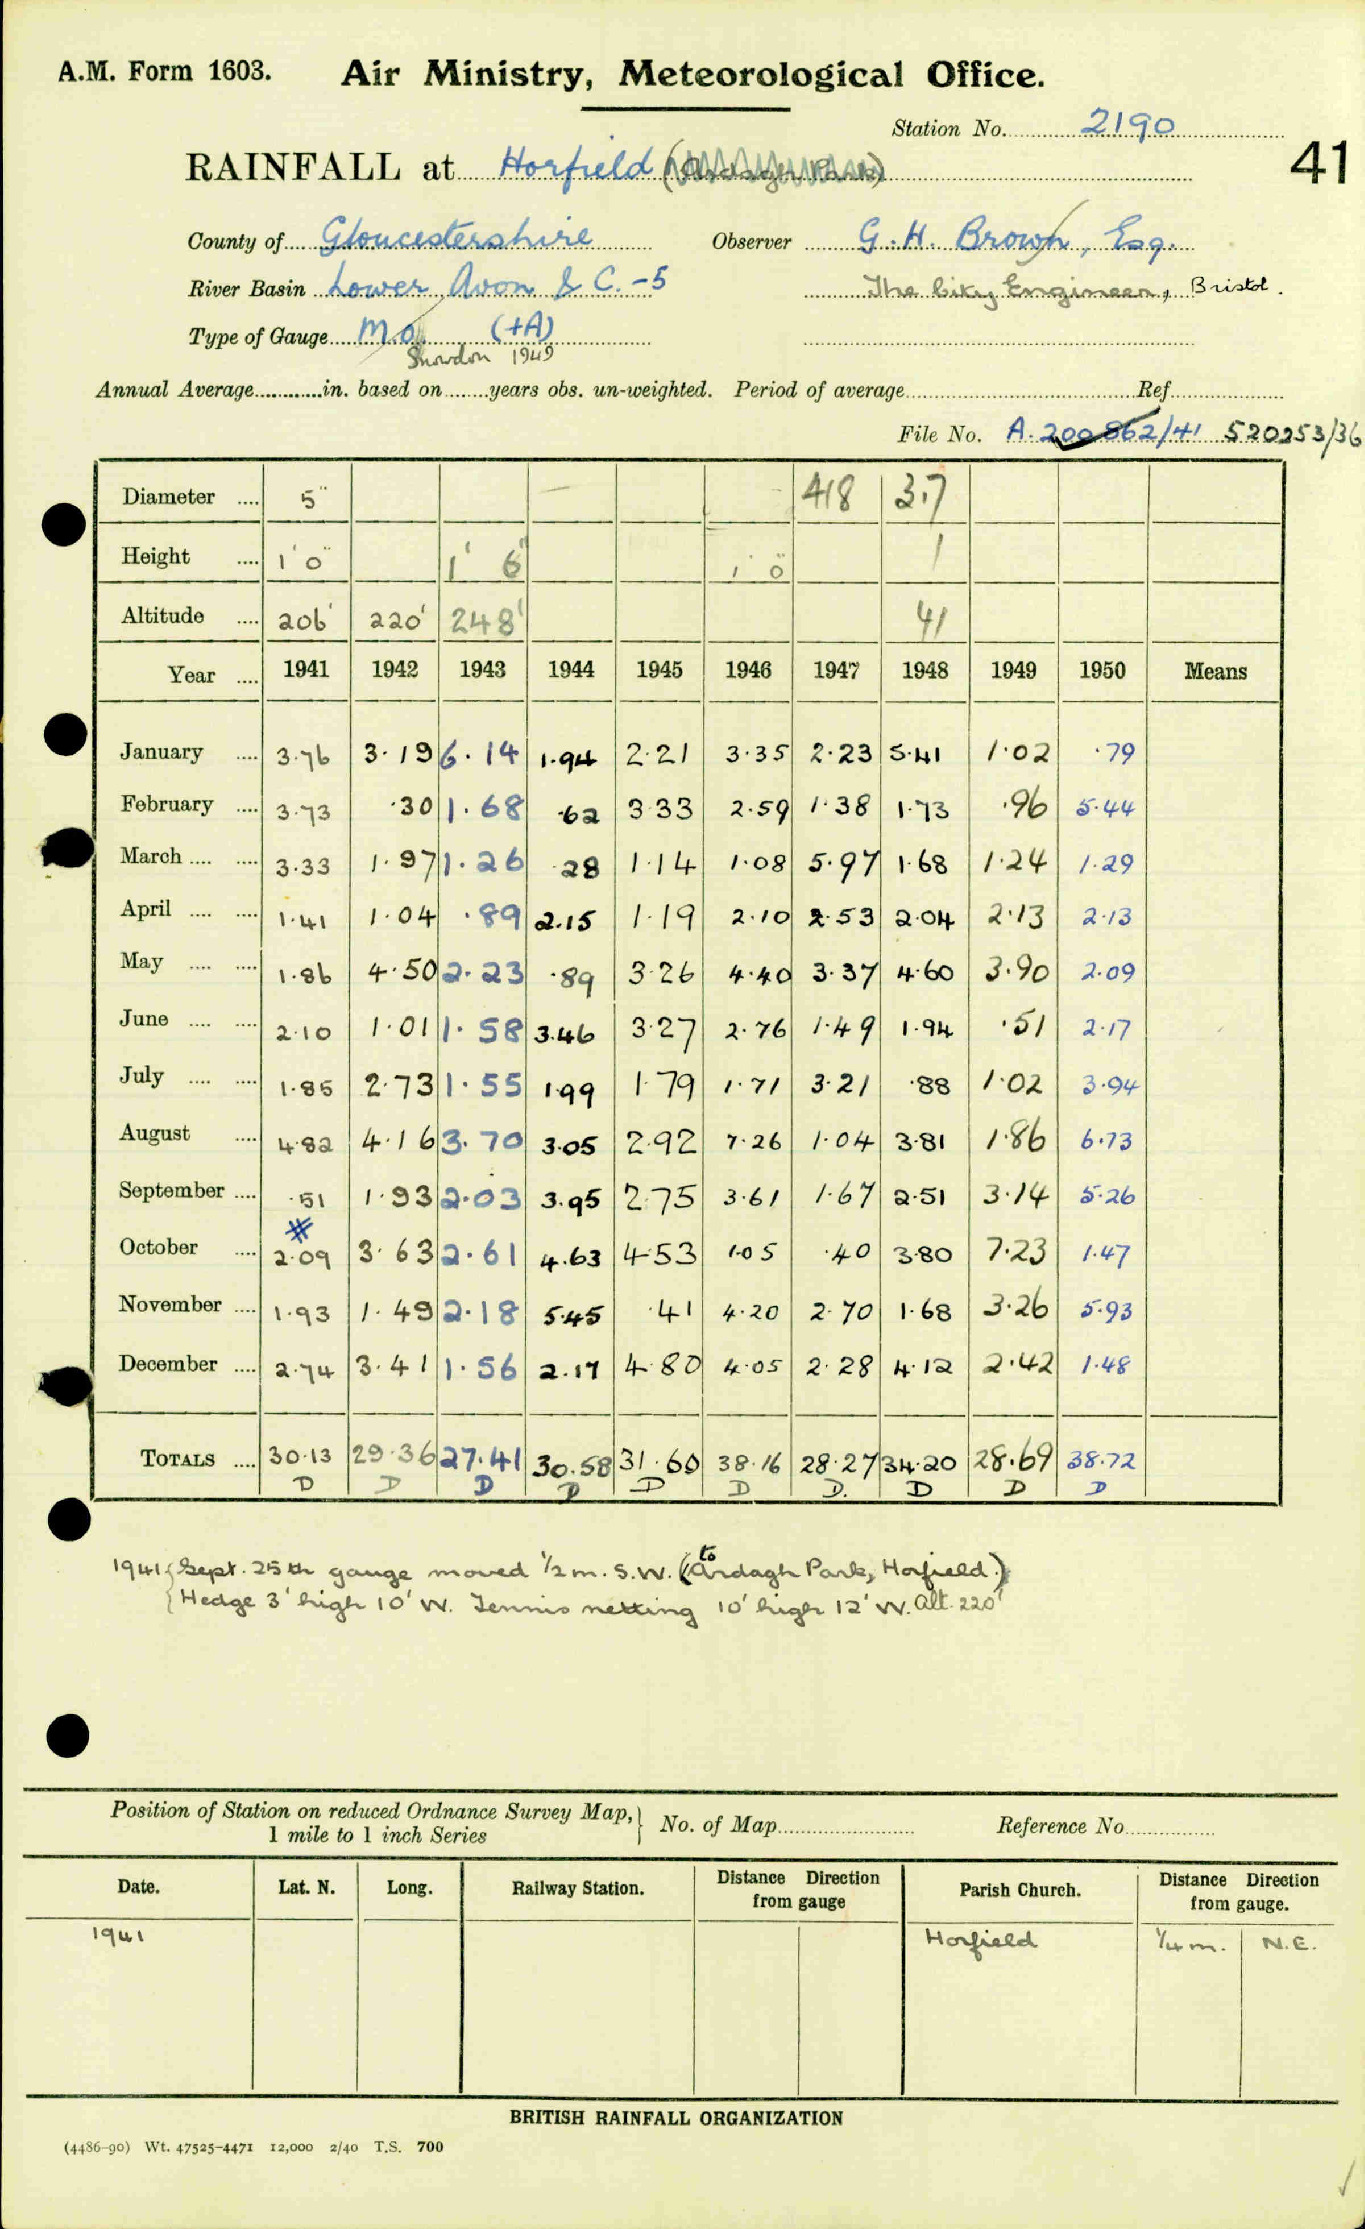 A.M. Form 1603. Air Ministry, Meteorological Office.
Station No. 2190
41
RAINFALL at Horfield (Ardagh Park)
County of Gloucestershire Observer G. H. Brown, Esq.
River Basin Lower Avon & C. -5 The City Engineer, Bristol.
Type of Gauge M.O. (+A)
Snowdon 1949
Annual Average in. based on years obs. un-weighted. Period of average Ref
File No. A. 200862/41 520253/36
Diameter 5" 418 3.7
Height 1' 0" 1' 6" 1' 0" 1
Altitude 206' 220' 248' 41
Year 1941 1942 1943 1944 1945 1946 1947 1948 1949 1950 Means
January 3.76 3.19 6.14 1.94 2.21 3.35 2.23 5.41 1.02 .79
February 3.73 .30 1.68 .62 3.33 2.59 1.38 1.73 .96 5.44
March 3.33 1.97 1.26 .28 1.14 1.08 5.97 1.68 1.24 1.29
April 1.41 1.04 .89 2.15 1.19 2.10 2.53 2.04 2.13 2.13
May 1.86 4.50 2.23 .89 3.26 4.40 3.37 4.60 3.90 2.09
June 2.10 1.01 1.58 3.46 3.27 2.76 1.49 1.94 .51 2.17
July 1.85 2.73 1.55 1.99 1.79 1.71 3.21 .88 1.02 3.94
August 4.82 4.16 3.70 3.05 2.92 7.26 1.04 3.81 1.86 6.73
September .51 1.93 2.03 3.95 2.75 3.61 1.67 2.51 3.14 5.26
#
October 2.09 3.63 2.61 4.63 4.53 1.05 .40 3.80 7.23 1.47
November 1.93 1.49 2.18 5.45 .41 4.20 2.70 1.68 3.26 5.93
December 2.74 3.41 1.56 2.17 4.80 4.05 2.28 4.12 2.42 1.48
TOTALS 30.13 29.36 27.41 30.58 31.60 38.16 28.27 34.20 28.69 38.72
D D D D D D D. D D D
1941 { Sept. 25th gauge moved 1/2 m. S.W. (to Ardagh Park, Horfield.)
Hedge 3' high 10' W. Tennis netting 10' high 12' W. Alt. 220'
Position of Station on reduced Ordnance Survey Map, } No. of Map Reference No
1 mile to 1 inch Series
Date. Lat. N. Long. Railway Station. Distance Direction from gauge Parish Church. Distance Direction from gauge.
1941 Horfield 1/4 m. N.E.
BRITISH RAINFALL ORGANIZATION
(4486-90) Wt. 47525-4471 12,000 2/40 T.S. 700